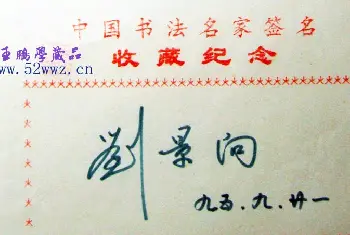 中国书法名家签名
王鹏學藏品
收藏纪念
www.52wwz.cn
劉景向
九五.九.廿一